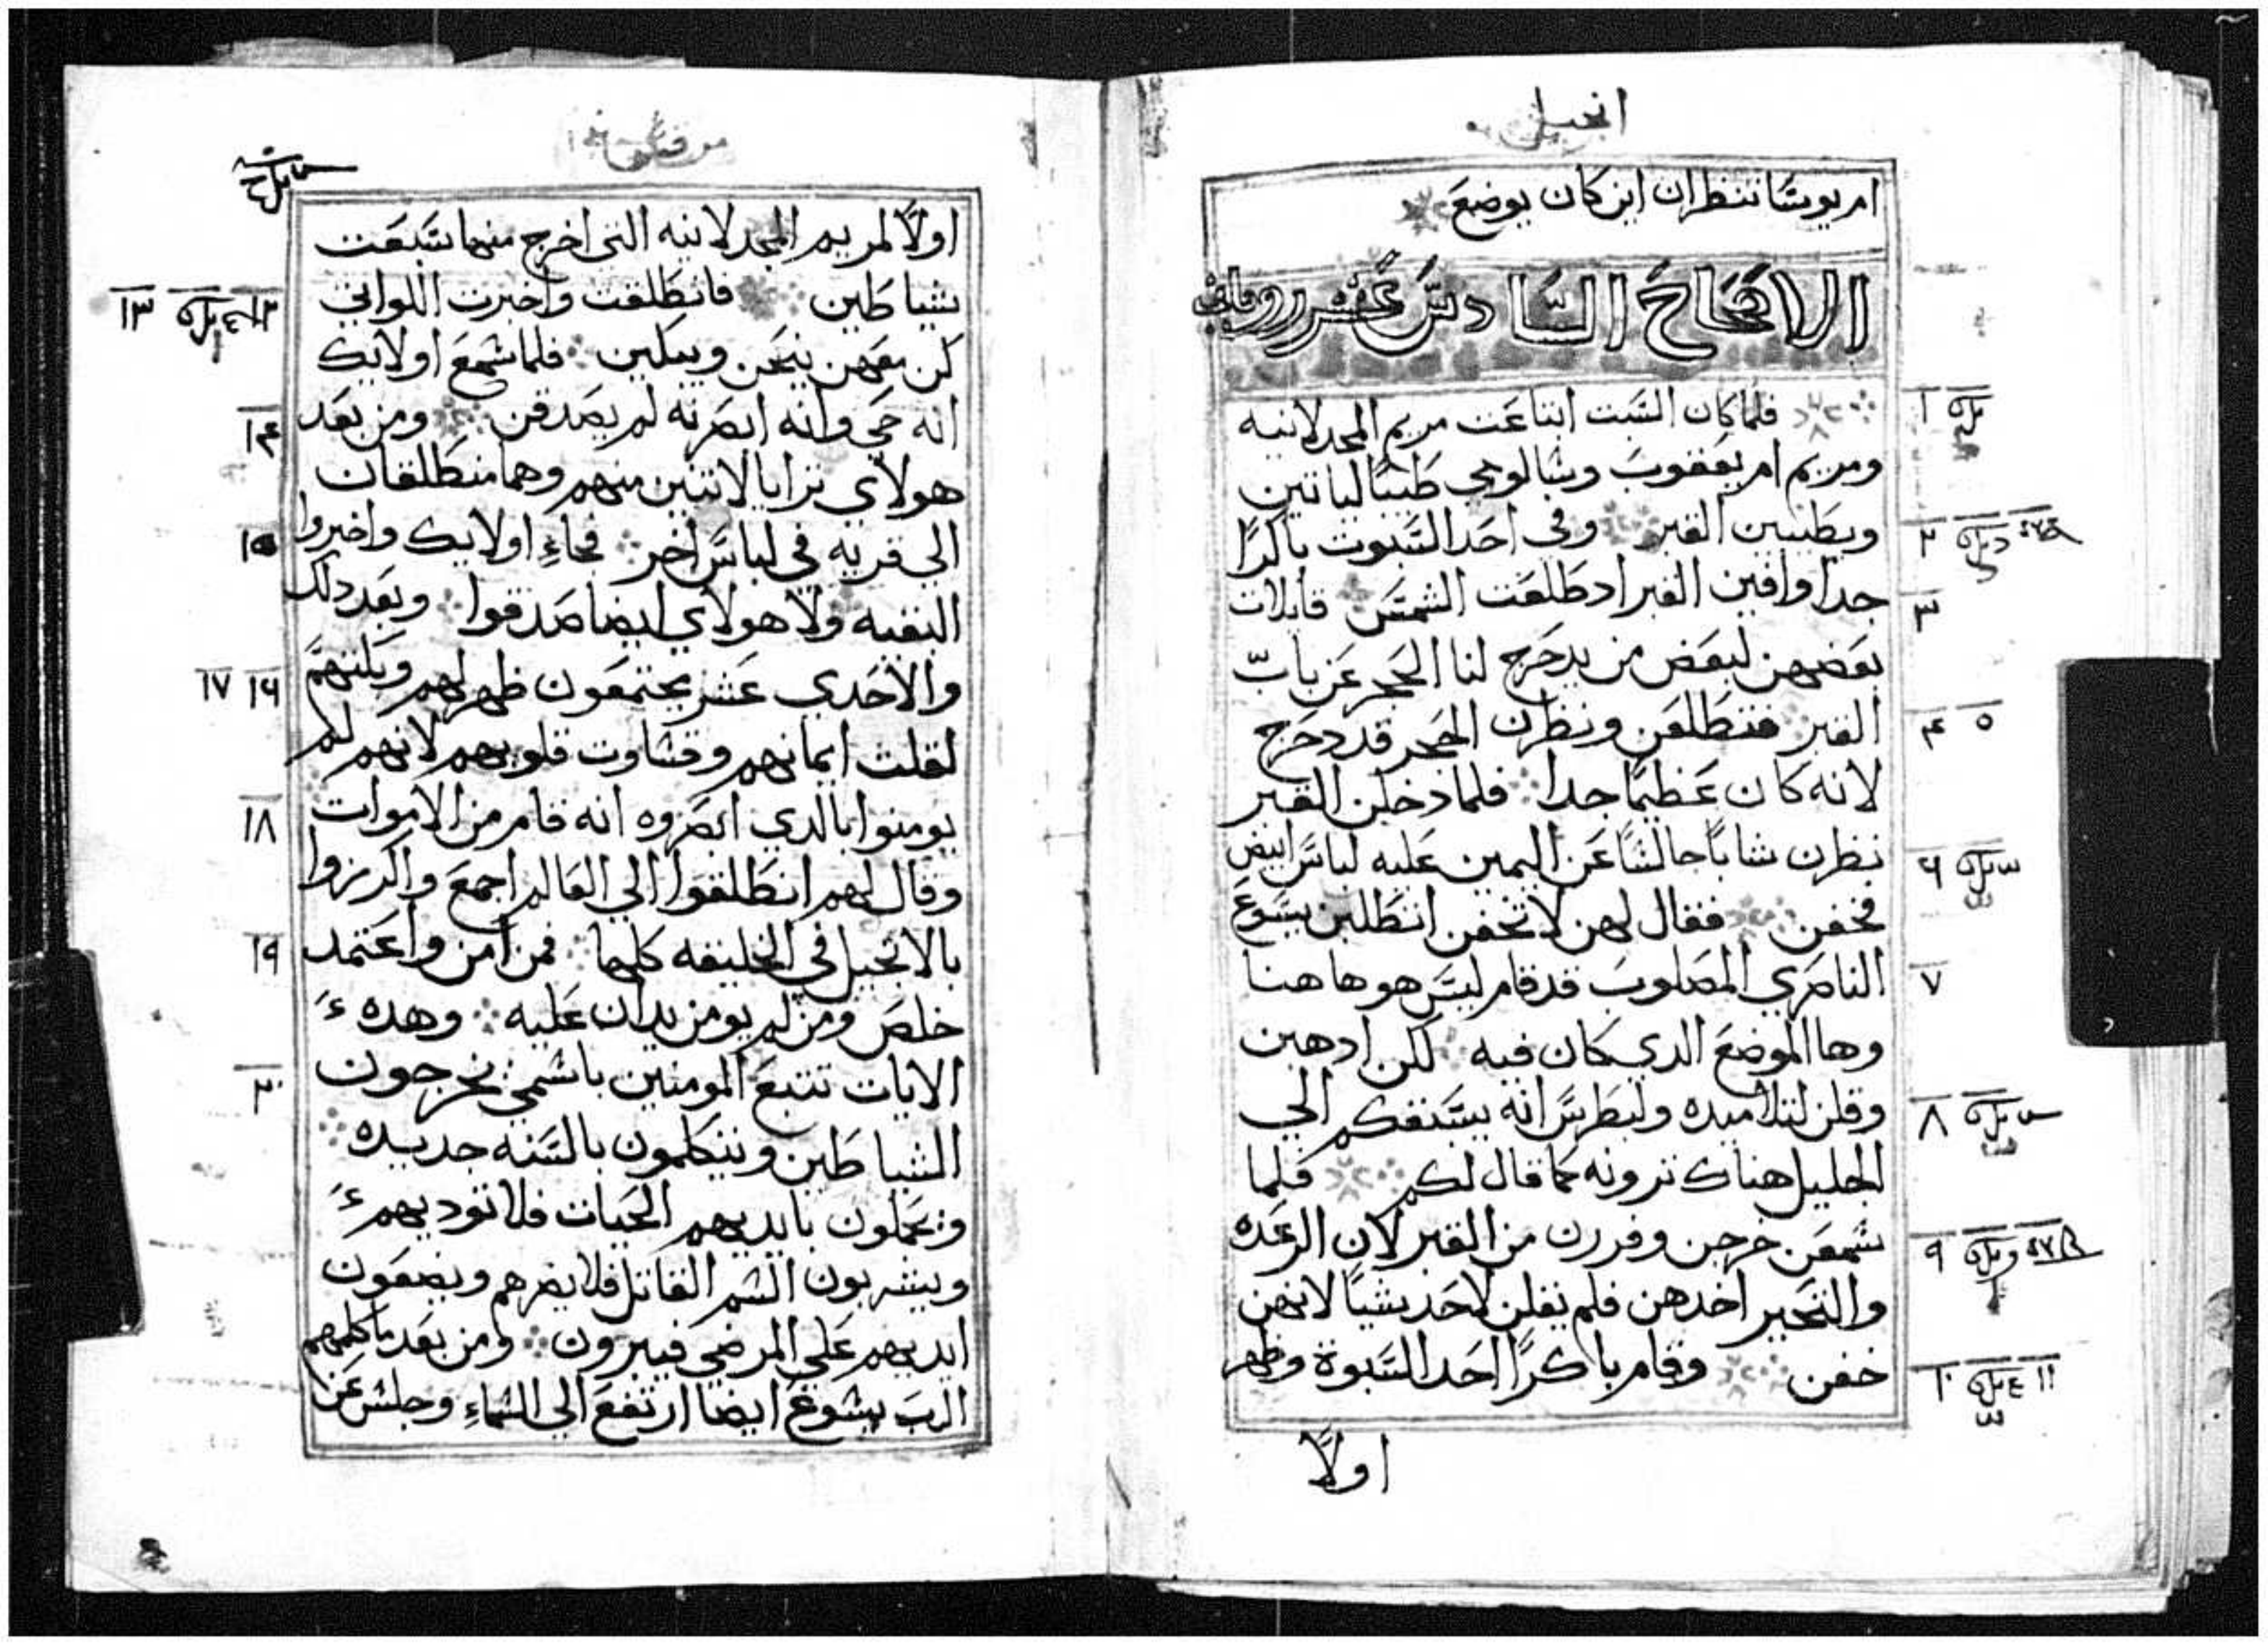 انجيل
ام يوسا تنظران اين كان يوضع
الاصحاح السادس عشر روماني
فلما كان السبت ابتاعت مريم المجدلانيه
ومريم ام يعقوب وسالومي طيبًا لياتين
ويطيبين القبر وفي احد السبوت باكرًا
جدا وافين القبر اد طلعت الشمس قايلات
بعضهن لبعض من يدحرج لنا الحجر عن باب
القبر فتطلعن ونظرن الحجر قد دحرج
لانه كان عظيمًا جدا فلما دخلن القبر
نظرن شابًا جالسًا عن اليمين عليه لباس ابيض
فخفن فقال لهن لا تخفن انتطلبن يسوع
الناصري المصلوب قد قام ليس هو هاهنا
وها الموضع الدي كان فيه لكن ادهبن
وقلن لتلاميده ولبطرس انه يسبقكم الي
الجليل هناك ترونه كما قال لكم فلما
سمعن خرجن وفررن من القبر لان الرعده
والتحير اخدهن فلم يقلن لاحد شيًا لانهن
خفن وقام باكرًا احد السبوة وظهر
اولًا
١
٢
٣
٥ ٤
٦
٧
٨
٩
١١ ١٠
اولًا لمريم المجدلانيه التي اخرج منها سبعت
شياطين فانطلقت واخبرت اللواتي
كن معهن ينحن ويبكين فلما سمع اولايك
انه حي وانه ابصرته لم يصدقن ومن بعد
هولاي ترايا لاتنين منهم وهما منطلقان
الي قريه في لباس اخر فجاء اولايك واخبروا
البقيه ولا هولاي ايضا صدقوا وبعد دلك
والاحدي عشر يجتمعون ظهر لهم وبكتهم
لقلت ايمانهم وقساوت قلوبهم لانهم لم
يومنوا بالدي ابصروه انه قام من الاموات
وقال لهم انطلقوا الي العالم اجمع واكرزوا
بالانجيل في الخليقه كلها فمن امن واعتمد
خلص ومن لم يومن يدان عليه وهده
الايات تتبع المومنين باسمي يخرجون
الشياطين ويتكلمون بالسنه جديده
ويحملون بايديهم الحيات فلا توديهم
ويشربون السم القاتل فلا يضرهم ويضعون
ايديهم علي المرضي فيبرون ومن بعد ما كلمهم
الرب يسوع ايضا ارتفع الي السماء وجلس عن
١٣ ١٢
١٤
١٥
١٧ ١٦
١٨
١٩
٢٠